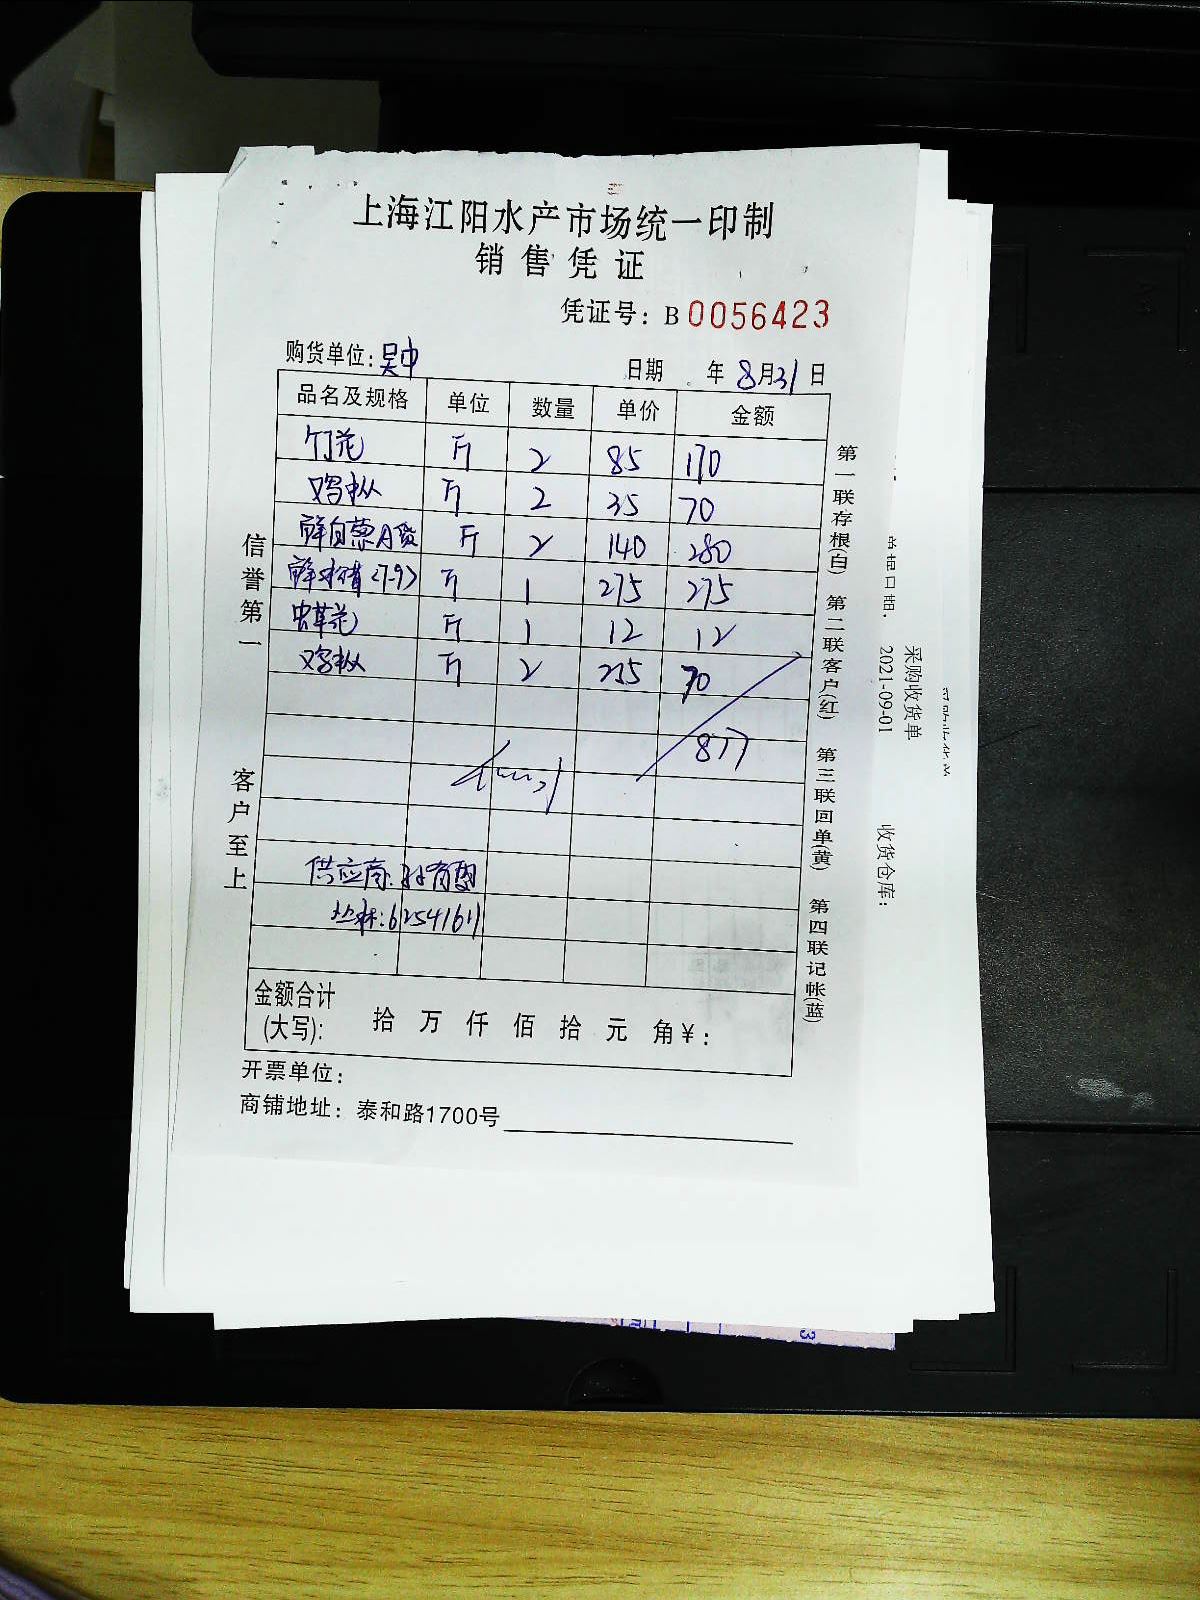 上海江阳水产市场统一印制
销售凭证
凭证号：B 0056423
购货单位：吴中 日期 年 8月31日
品名及规格 单位 数量 单价 金额
竹荪 斤 2 85 170
鸡枞 斤 2 35 70
斤 2 140 280
鲜 <7-9> 斤 1 275 275
虫草花 斤 1 12 12
鸡枞 斤 2 70
877
供应商：孙有
金额合计
(大写)：拾 万 仟 佰 拾 元 角 ¥：
开票单位：
商铺地址：泰和路1700号
信誉第一
客户至上
第一联存根(白) 第二联客户(红) 第三联回单(黄) 第四联记帐(蓝)
2021-09-01
采购收货单
收货仓库：